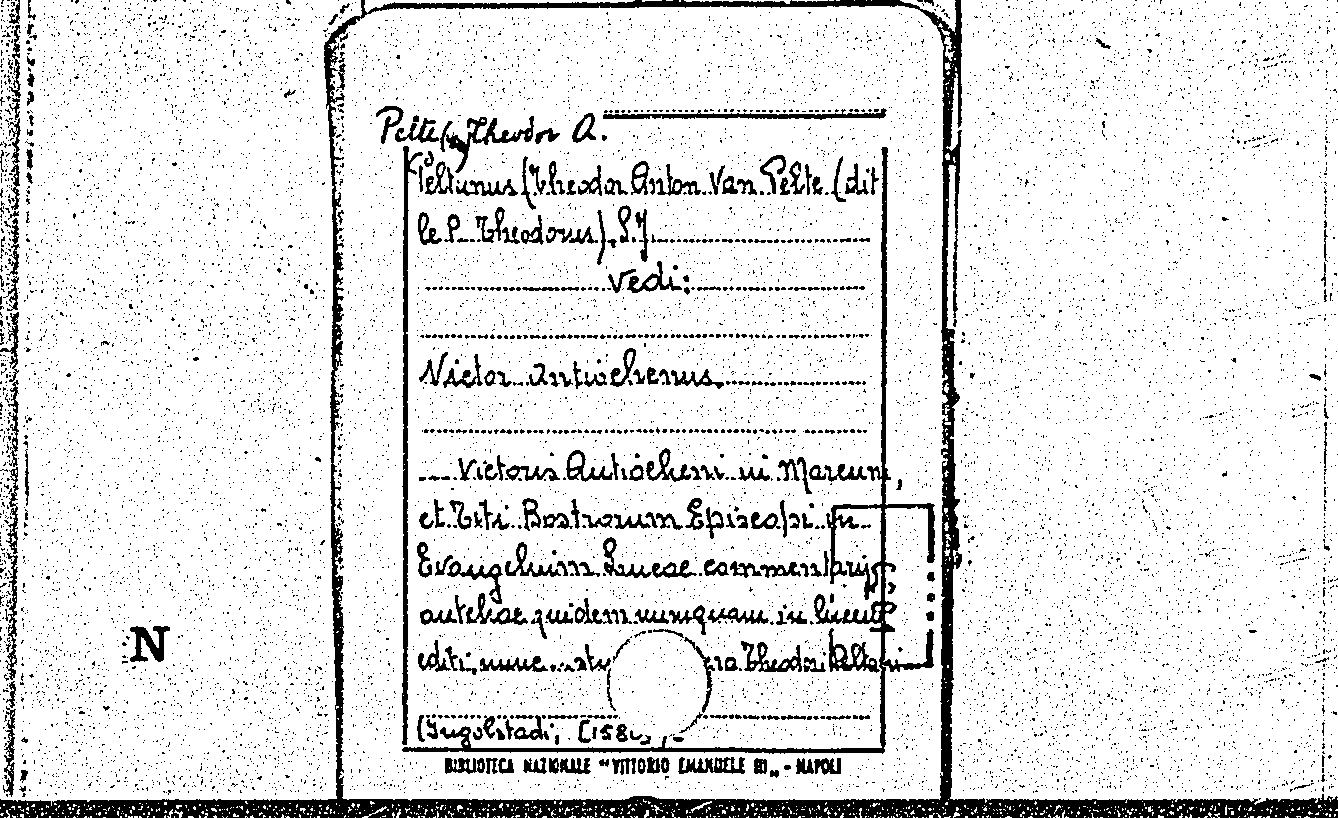 Pelte, Theodor A.
Peltanus (Theodor Anton Van Pelte (dit
le P. Theodorus). S.J.
Vedi:
Victor Antiochenus.
Victoris Antiocheni in Marcum,
et Titi Bostrorum Episcopi in
Evangelium Lucae commentarij,
antehac quidem nunquam in lucem
editi, nunc Theodori Peltani
(Ingolstadi, [158
N
BIBLIOTECA NAZIONALE "VITTORIO EMANUELE III" - NAPOLI